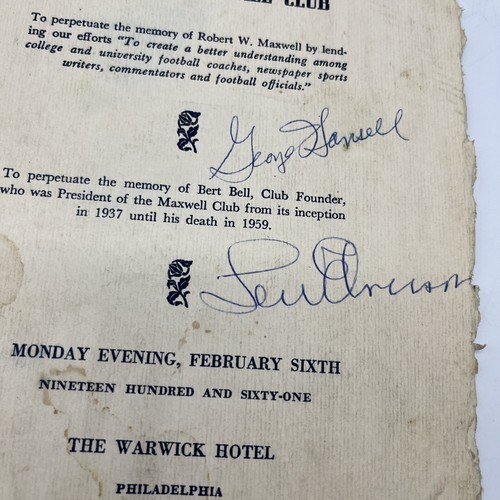 CLUB
To perpetuate the memory of Robert W. Maxwell by lend-
ing our efforts "To create a better understanding among
college and university football coaches, newspaper sports
writers, commentators and football officials."
George
To perpetuate the memory of Bert Bell, Club Founder,
who was President of the Maxwell Club from its inception
in 1937 until his death in 1959.
MONDAY EVENING, FEBRUARY SIXTH
NINETEEN HUNDRED AND SIXTY-ONE
THE WARWICK HOTEL
PHILADELPHIA